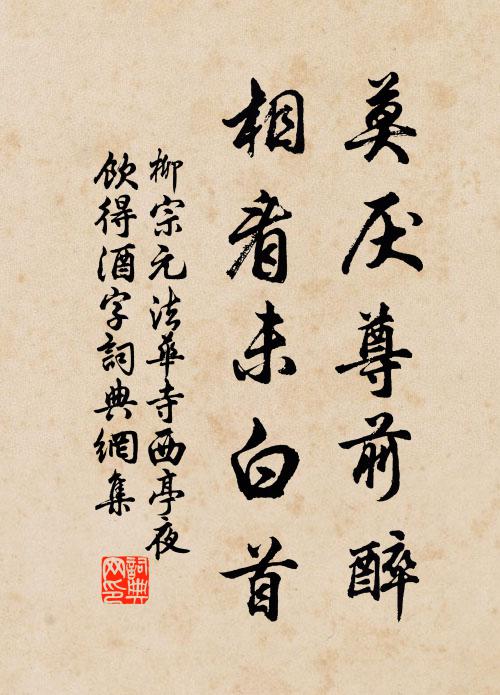 莫厌尊前醉
相看未白首
柳宗元法華寺西亭夜
飲得酒字詞典網集
詞典
网印